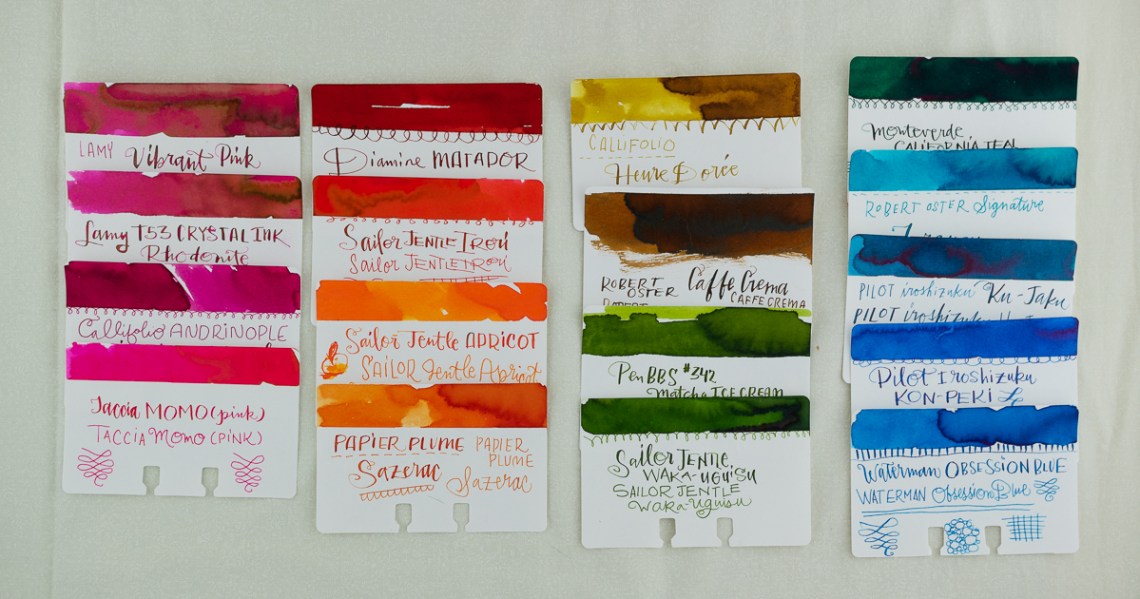 LAMY Vibrant Pink
Lamy T53 CRYSTAL INK
Rhodonite
Callifolio ANDRINOPLE
Taccia MOMO (pink)
TACCIA Momo (PINK)
Diamine MATADOR
Sailor JENTLE Irori
Sailor JENTLE Irori
Sailor Jentle APRICOT
SAILOR Jentle Apricot
PAPIER PLUME PAPIER
PLUME
Sazerac Sazerac
CALLIFOLIO
Heure Dorée
ROBERT
OSTER Caffe Crema
CAFFE CREMA
ROBERT
PenBBS #342
Matcha ICE CREAM
Sailor JENTLE
WAKA-UGUISU
SAILOR JENTLE
Waka-Uguisu
Monteverde
CALIFORNIA TEAL
ROBERT OSTER Signature
PILOT iroshizuku Ku-Jaku
PILOT iroshizuku
Pilot Iroshizuku
KON-PEKI
Waterman OBSESSION BLUE
WATERMAN Obsession Blue